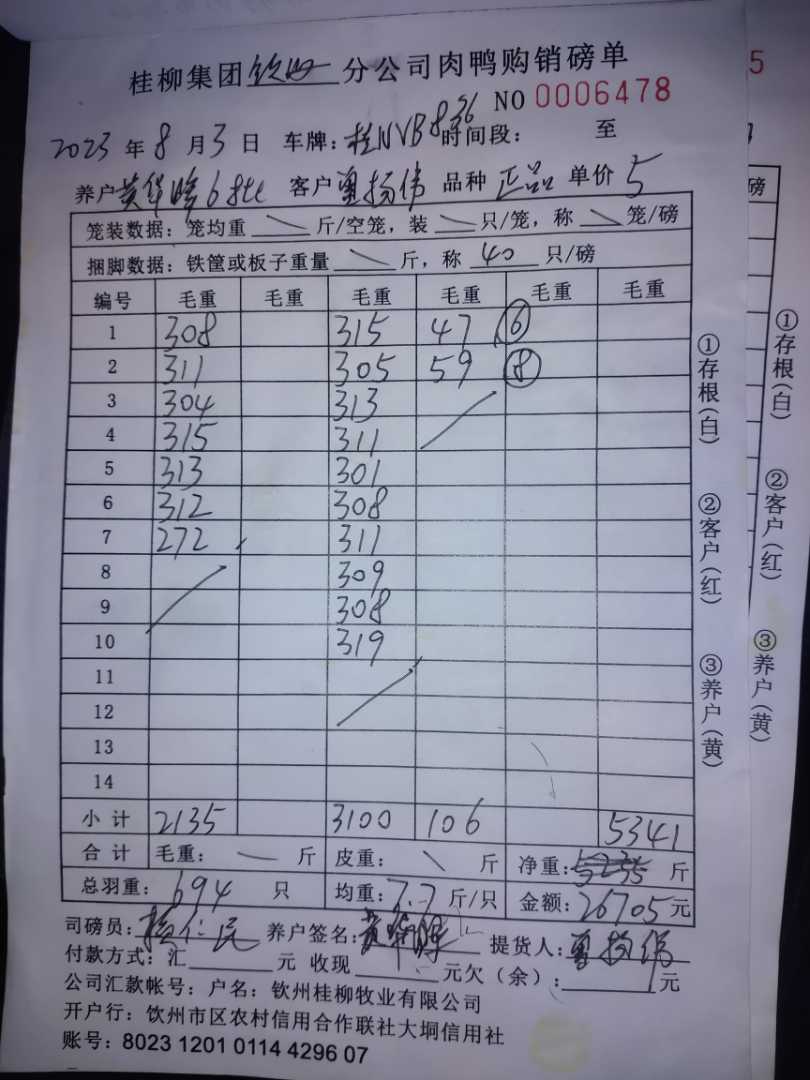 桂柳集团钦州分公司肉鸭购销磅单
NO 0006478
2023年8月3日 车牌:桂NVB836 时间段: 至
养户黄华晓68批 客户 扬伟 品种 正品 单价 5
笼装数据:笼均重 \ 斤/空笼,装 \ 只/笼,称 \ 笼/磅
捆脚数据:铁筐或板子重量 \ 斤,称 40 只/磅
编号 毛重 毛重 毛重 毛重 毛重 毛重
1 308 315 47 ⑥
2 311 305 59 ⑧
3 304 313
4 315 311
5 313 301
6 312 308
7 272 311
8 309
9 308
10 319
11
12
13
14
小计 2135 3100 106 5341
合计 毛重: 斤 皮重: \ 斤 净重: 斤
总羽重: 694 只 均重: 7.7 斤/只 金额: 26705元
司磅员: 仁民 养户签名: 黄华 提货人: 扬伟
付款方式:汇 元 收现 元欠(余): 元
公司汇款帐号:户名:钦州桂柳牧业有限公司
开户行:钦州市区农村信用合作联社大垌信用社
账号:8023 1201 0114 4296 07
①存根(白)
②客户(红)
③养户(黄)
5
磅
①存根(白)
②客户(红)
③养户(黄)